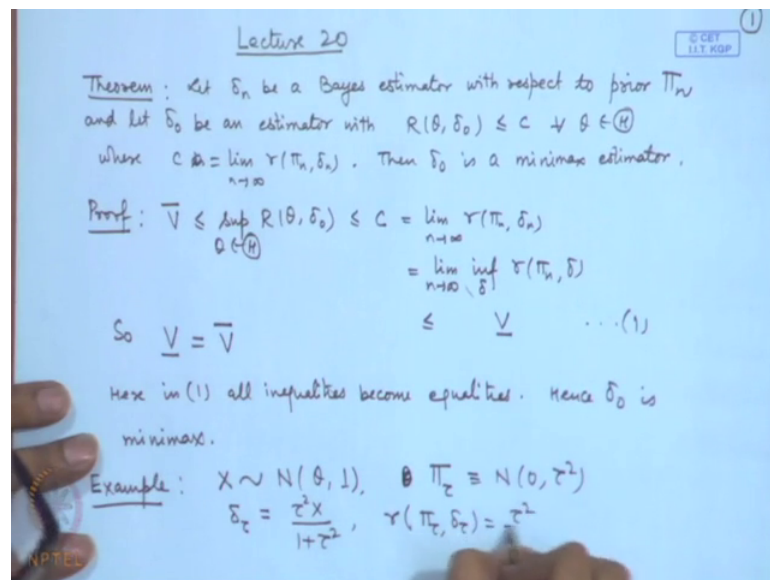 ①
Lecture 20
© CET
I.I.T. KGP
Theorem : Let δₙ be a Bayes estimator with respect to prior Πₙ
and let δ₀ be an estimator with R(θ, δ₀) ≤ C ∀ θ ∈ Ⓗ
where C = lim r(πₙ, δₙ). Then δ₀ is a minimax estimator.
n→∞
Proof : V̅ ≤ sup R(θ, δ₀) ≤ C = lim r(πₙ, δₙ)
θ ∈ Ⓗ n→∞
= lim inf r(πₙ, δ)
n→∞ δ
≤ V̲ ...(1)
So V̲ = V̅
Here in (1) all inequalities become equalities. Hence δ₀ is
minimax.
Example : X ~ N(θ, 1), θ Π_τ ≡ N(0, τ²)
δ_τ = τ²x / 1+τ² , r(π_τ, δ_τ) = τ²
NPTEL